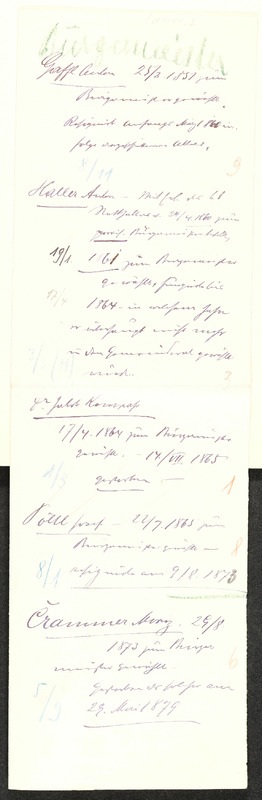 Bürgermeister
Gaffl Anton 25/3 1851 zum
Bürgermeister gewählt.
Resignirt anfangs März 1860 in
folge vorgeschrittenen Alters.
8/11
9
Haller Anton – Mitglied des
24/4 1860 zum
prov. Bürgermeister bestellt,
19/1 1861 zum Bürgermeister
gewählt, fungirte bis
1864 in welchem Jahre
er überhaupt nicht mehr
in den Gemeinderat gewählt
wurde.
3
Dr Jakob
17/4. 1864 zum Bürgermeister
gewählt. – 14/VII. 1865
gestorben –
1/3
1
Pöltl Josef – 22/7. 1865 zum
Bürgermeister gewählt –
resignirte am 9/8 1873
8/1
8
Crammer Moriz 29/8
1873 zum Bürger
meister gewählt.
Gestorben als solcher am
29. Mai 1879
5/9
6